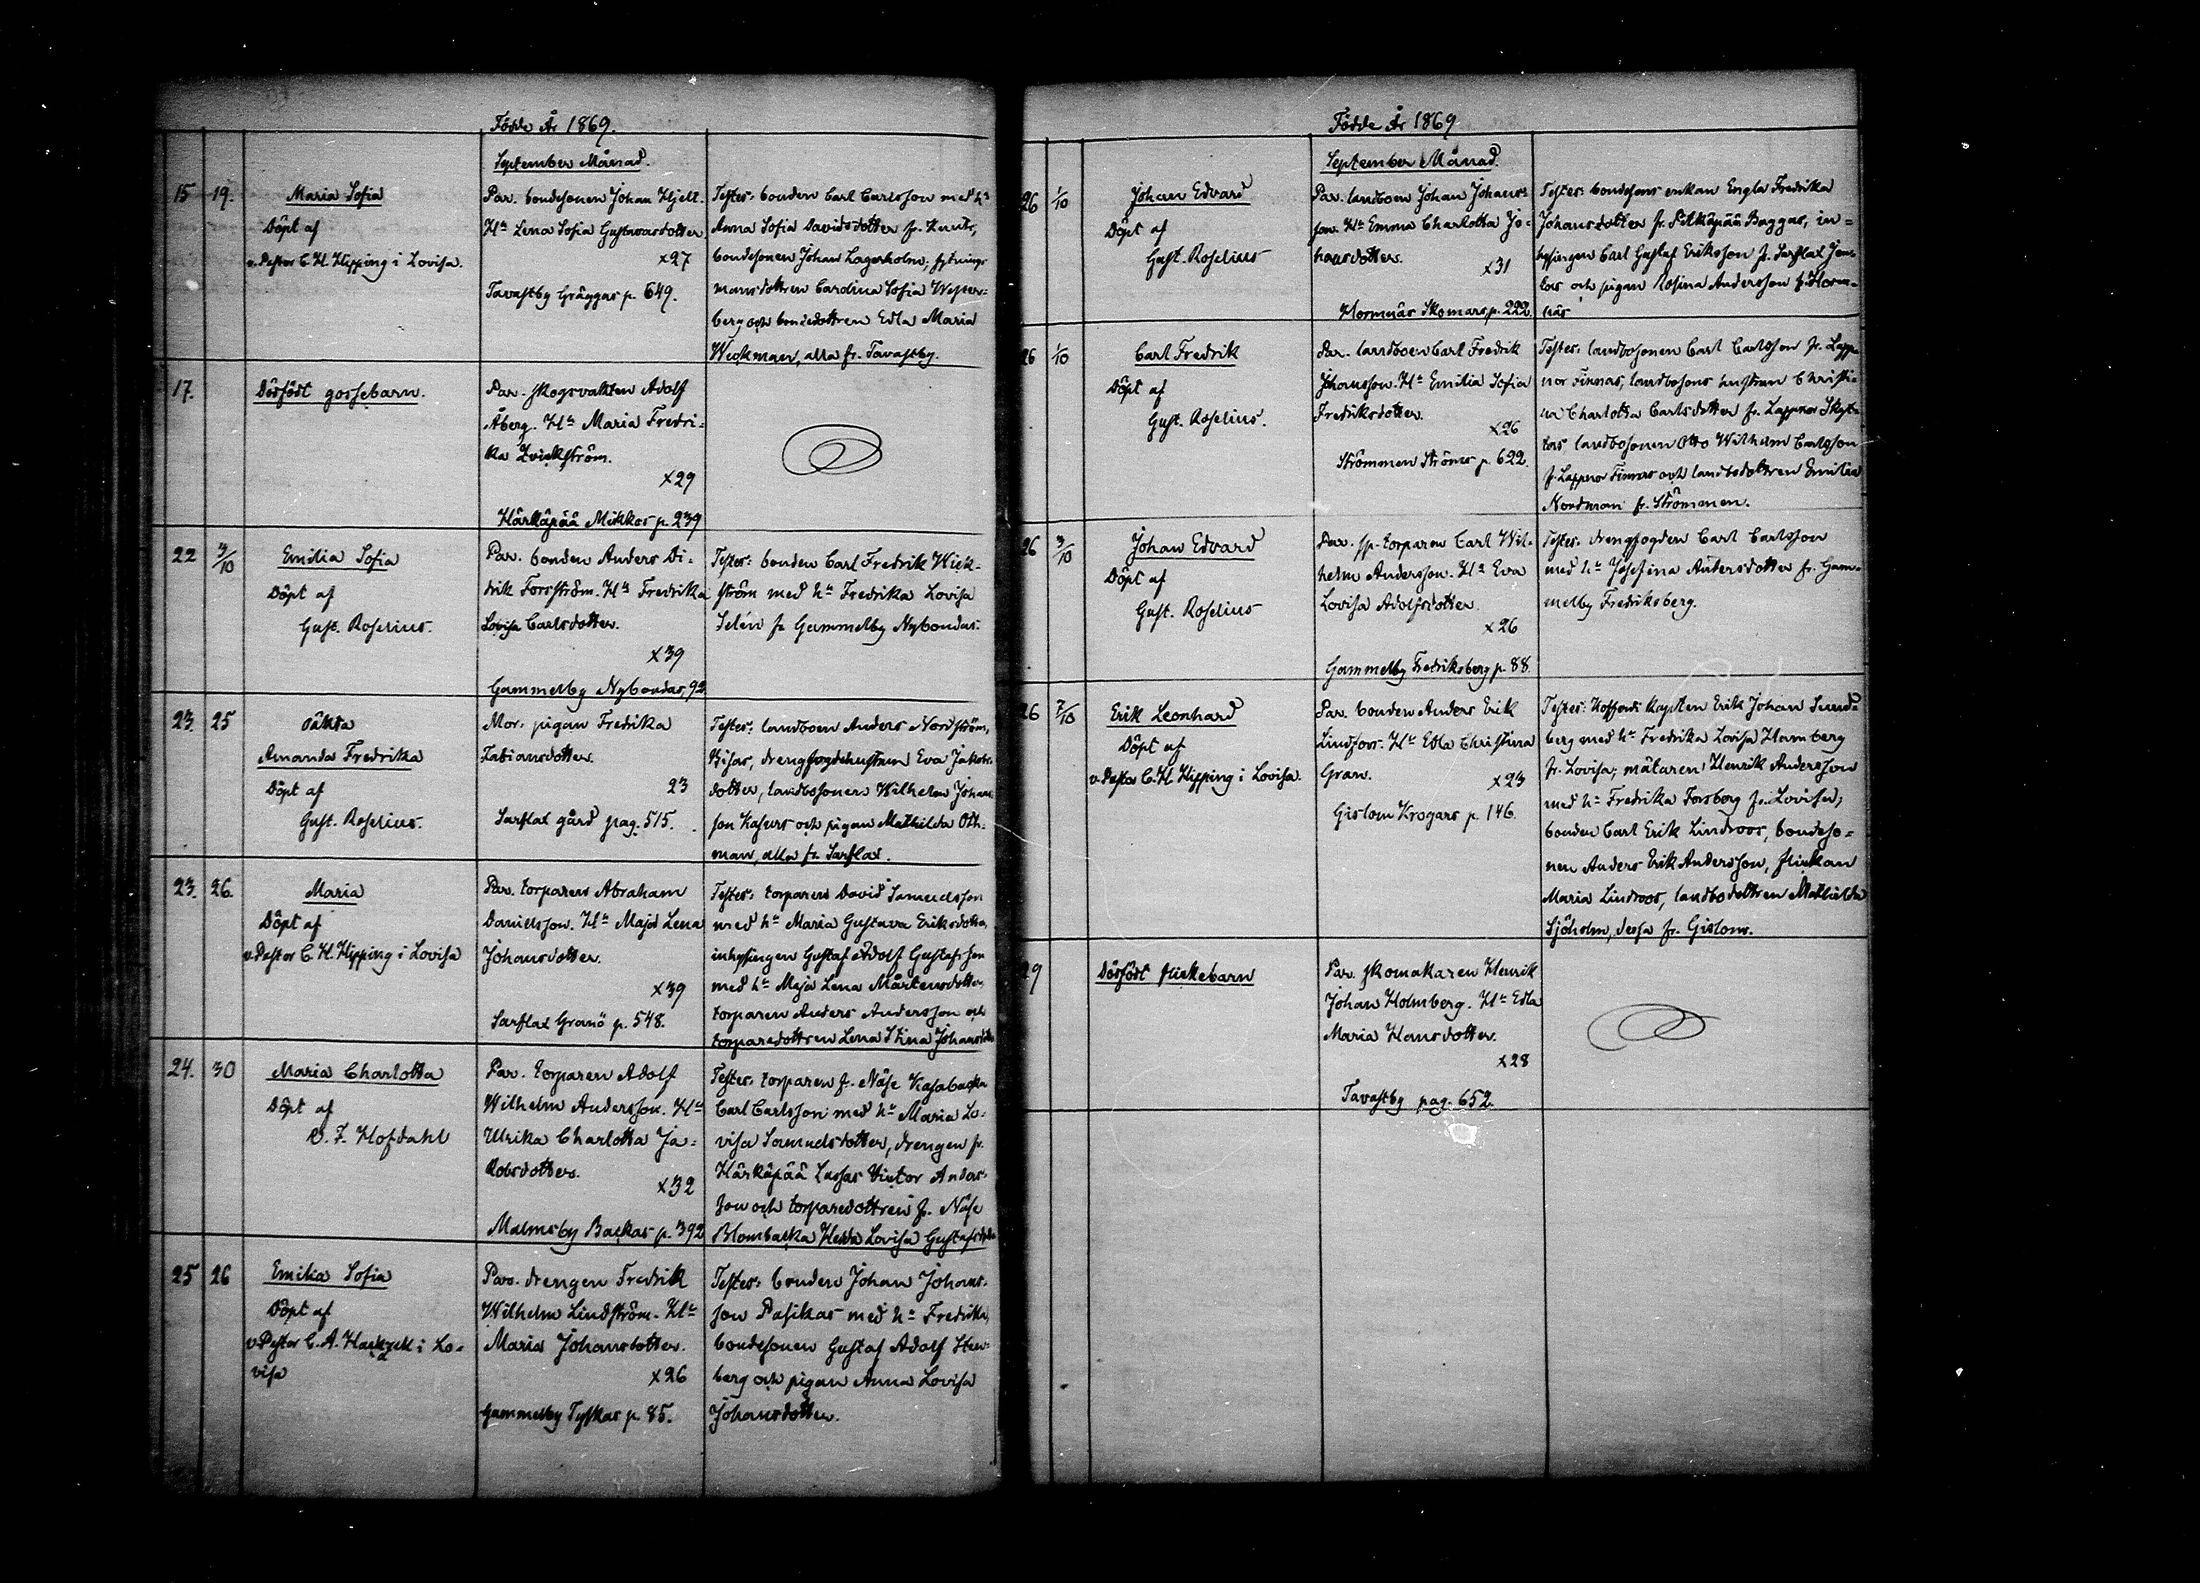 Födde År 1869.
September Månad.
15 19. Maria Sofia
Döpt af
v. Pastor C. H. Hipping i Lovisa.
Par. bondesonen Johan Hjelt.
Hu Lena Sofia Gustavasdotter.
x27
Tavastby Gräggas p. 649.
Testes: bonden Carl Carlsson med hu
Anna Sofia Davidsdotter fr.
bondesonen Johan Lagerholm,
mansdottren Carolina Sofia Wester=
berg och bondedottren Edla Maria
Wickman, alla fr. Tavastby.
17. Dödfödt gossebarn.
Par. skogsvakten Adolf
Åberg. Hu Maria Fredri=
ka Qvickström.
x29
Härkäpää Mickos p. 239
22 3/10 Emilia Sofia
Döpt af
Gust. Roselius.
Par. bonden Anders Di=
drik Forsström. Hu Fredrika
Lovisa Carlsdotter.
x39
Gammelby Nybondas, 92.
Testes: bonden Carl Fredrik Wick=
ström med hu Fredrika Lovisa
Selén fr Gammelby Nybondas.
23. 25 oäkta
Amanda Fredrika
Döpt af
Gust. Roselius.
Mor: pigan Fredrika
Fabiansdotter.
23
Sarflax gård pag. 515.
Testes: landboen Anders Nordström,
Bisas, drengfogdehustrun Eva Jakobs
dotter, landbosonen Wilhelm Johans
son Kasurs och pigan Mathilda Oth=
man, alla fr. Sarflax.
23. 26. Maria
Döpt af
v. Pastor C. H. Hipping i Lovisa
Par. torparen Abraham
Danielsson. Hu Maja Lena
Johansdotter.
x39
Sarflax Granö p. 548.
Testes: torparen David Samuelsson
med hu Maria Gustava Eriksdotter,
inhysingen Gustaf Adolf Gustafsson
med hu Maja Lena Mårtensdotter,
torparen Anders Andersson och
torparedottren Lena Stina Johansdotter
24. 30 Maria Charlotta
Döpt af
O. F. Hofdahl
Par. torparen Adolf
Wilhelm Andersson. Hu
Ulrika Charlotta Ja=
kobsdotter.
x32
Malmsby Backas p. 392
Testes: torparen fr. Näse Kasabacka
Carl Carlsson med hu Maria Lo=
visa Samuelsdotter, drengen fr.
Härkäpää Lassas Victor Anders=
son och torparedottren fr. Näse
Blombacka Hedda Lovisa Gustafsdotter
25 26 Emilia Sofia
Döpt af
v. Pastor C. A. Hackzell i Lo=
visa
Par. drengen Fredrik
Wilhelm Lindström. Hu
Maria Johansdotter.
x26
Gammelby Tyskas p. 85.
Testes: bonden Johan Johans=
son Pasikas med hu Fredrika,
bondesonen Gustaf Adolf Sten=
berg och pigan Anna Lovisa
Johansdotter.
Födde År 1869
September Månad.
26 1/10 Johan Edvard
Döpt af
Gust. Roselius
Par. landboen Johan Johans=
son. Hu Emma Charlotta Jo=
hansdotter.
x31
Hormnäs Skomars p. 222
Testes: bondesons enkan Engla Fredrika
Johansdotter fr. Pitkäpää Baggas, in=
hysingen Carl Gustaf Eriksson fr. Sarflax
och pigan Rosina Andersson fr. Horm=
näs
26 1/10 Carl Fredrik
Döpt af
Gust. Roselius.
Par. landboen Carl Fredrik
Johansson. Hu Emilia Sofia
Fredriksdotter.
x26
Strömmen Ströms p. 622.
Testes: landbosonen Carl Carlsson fr. Lapp=
nor Finnas, landbosons hustrun Christi=
na Charlotta Carlsdotter fr. Lappnor Skyt=
tas landbosonen Otto Wilhelm Carlsson
fr. Lappnor Finnas och landbodottren Emilia
Nordman fr. Strömmen.
26 3/10 Johan Edvard
Döpt af
Gust. Roselius
Par. sp-torparen Carl Wil=
helm Andersson. Hu Eva
Lovisa Adolfsdotter.
x26
Gammelby Fredriksberg p. 88.
Testes: drengfogden Carl Carlsson
med hu Josefina Andersdotter fr. Gam=
melby Fredriksberg.
26 7/10 Erik Leonhard
Döpt af
v. Pastor C. H. Hipping i Lovisa.
Par. bonden Anders Erik
Lindfors. Hu Edla Christina
Gran.
x23
Gislom Krogars p. 146.
Testes: Kofferdi Kapten Erik Johan Sund=
berg med hu Fredrika Lovisa Hamberg
fr. Lovisa, mätaren Henrik Andersson
med hu Fredrika Forsberg fr. Lovisa,
bonden Carl Erik Lindroos, bondeso=
nen Anders Erik Andersson, flickan
Maria Lindroos, landbodottren Mathilda
Sjöholm, dessa fr. Gislom.
29 Dödfödt flickebarn
Par. skomakaren Henrik
Johan Holmberg. Hu Edla
Maria Hansdotter.
x28
Tavastby pag. 652.